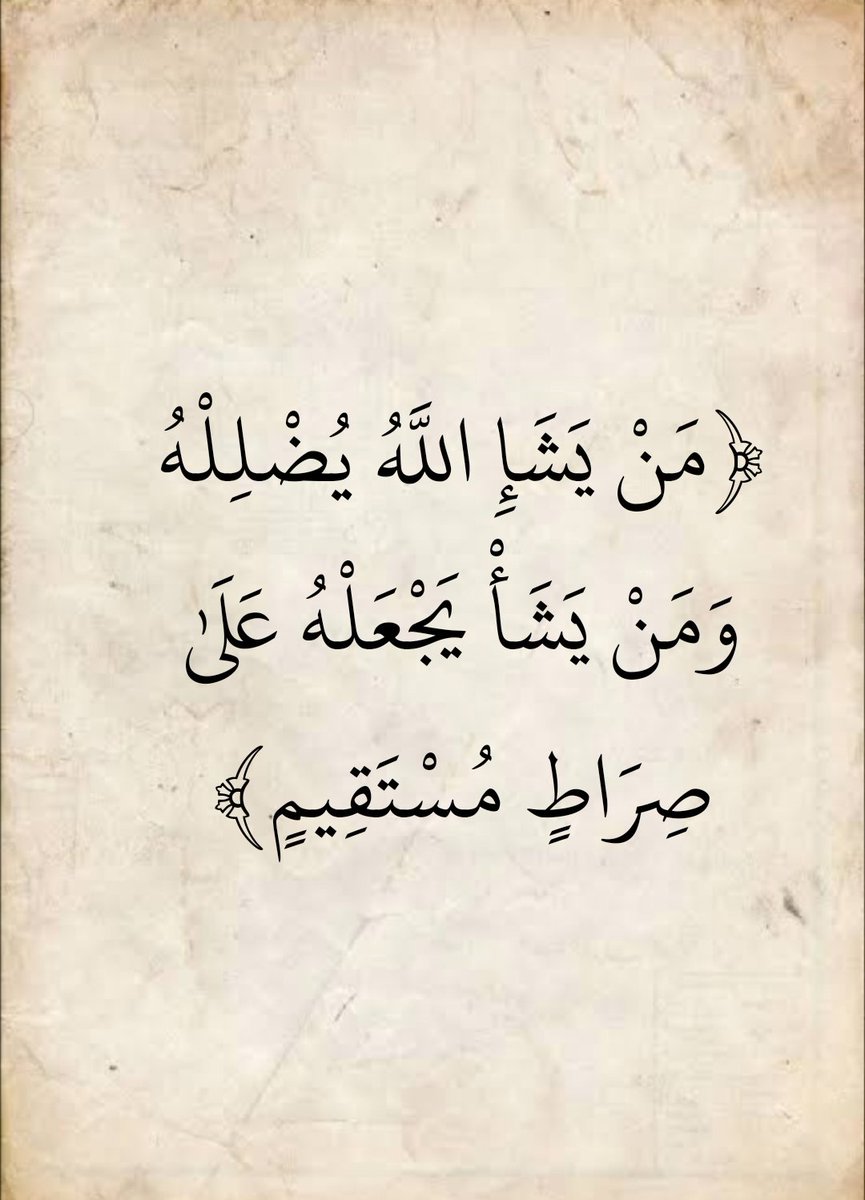 ﴿مَنْ يَشَإِ اللَّهُ يُضْلِلْهُ
وَمَنْ يَشَأْ يَجْعَلْهُ عَلَىٰ
صِرَاطٍ مُسْتَقِيمٍ﴾